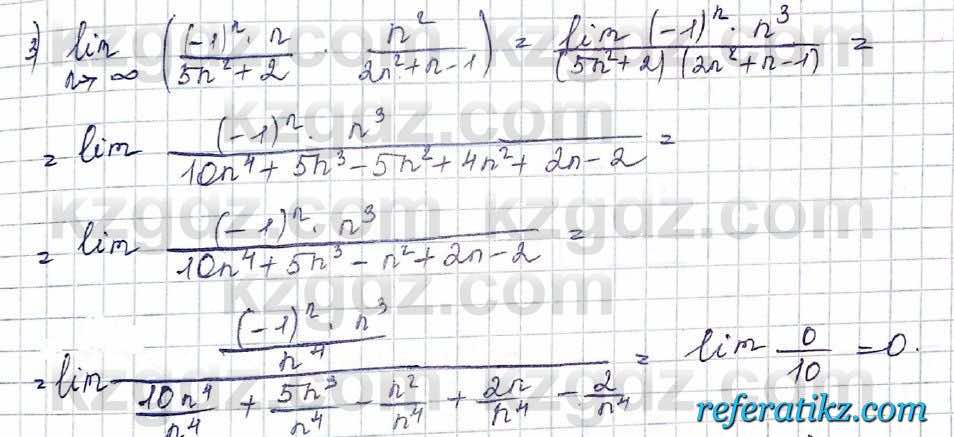 3) lim n→∞ ((-1)ⁿ · n / 5n² + 2 · n² / 2n² + n - 1) = lim (-1)ⁿ · n³ / (5n² + 2) (2n² + n - 1) =
= lim (-1)ⁿ · n³ / 10n⁴ + 5n³ - 5n² + 4n² + 2n - 2 =
= lim (-1)ⁿ · n³ / 10n⁴ + 5n³ - n² + 2n - 2 =
= lim (-1)ⁿ · n³ / n⁴ / 10n⁴ / n⁴ + 5n³ / n⁴ - n² / n⁴ + 2n / n⁴ - 2 / n⁴ = lim 0 / 10 = 0.
kzgdz.com
kzgdz.com
kzgdz.com
kzgdz.com
kzgdz.com
referatikz.com